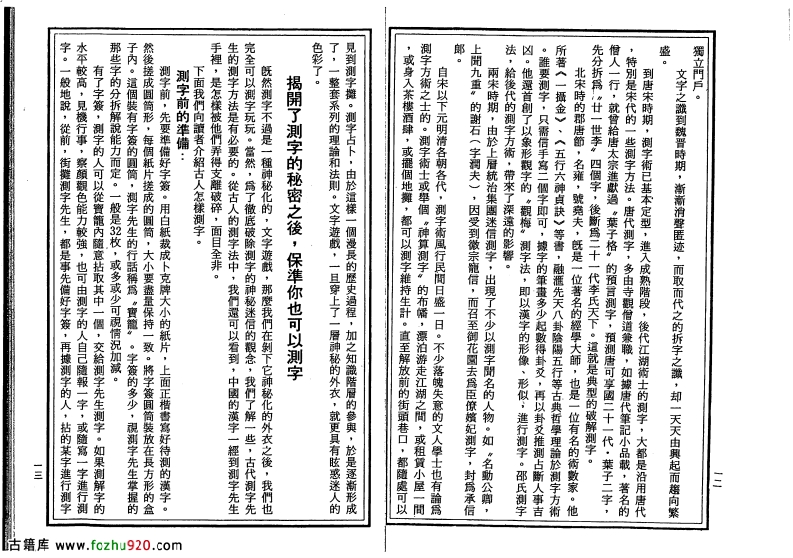 獨立門戶。
文字之讖到魏晉時期，漸漸消聲匿迹，而取而代之的拆字之讖，却一天天由興起而趨向繁
盛。
到唐宋時期，測字術已基本定型，進入成熟階段，後代江湖術士的測字，大都是沿用唐代
，特別是宋代的一些測字方法。唐代測字，多由寺觀僧道兼職，如據唐代筆記小品載，著名的
僧人一行，就曾給唐太宗進獻過〝葉子格〞的預言測字，預測唐可享國二十一代·葉子二字，
先分拆爲〝廿一世李〞四個字，後斷爲二十一代李氏天下。這就是典型的破解測字。
北宋時的郡唐節，名雍，號堯夫，既是一位著名的經學大師，也是一位有名的術數家。他
所著《一撮金》、《五行六神貞訣》等書，融滙先天八卦陰陽五行等古典哲學理論於測字方術
。誰要測字，只需信手寫二個字即可，據字的筆畫多少起數得卦爻，再以卦爻推測占斷人事吉
凶。他還首創了以象形觀字的〝觀梅〞測字法，即以漢字的形像、形似，進行測字。邵氏測字
法，給後代的測字方術，帶來了深遠的影響。
兩宋時期，由於上層統治集團迷信測字，出現了不少以測字聞名的人物。如〝名動公卿，
上聞九重〞的謝石（字潤夫），因受到徽宗寵信，而召至御花園去爲臣僚嬪妃測字，封爲承信
郎。
自宋以下元明清各朝各代，測字術風行民間日盛一日。不少落魄失意的文人學士也有論爲
測字方術之士的。測字術士或舉個〝神算測字〞的布幡，漂泊游走江湖之間，或租賃小屋一間
，或身入茶樓酒肆，或擺個地攤，都可以測字維持生計。直至解放前的街頭巷口，都隨處可以
一二
見到測字攤。測字占卜，由於這樣一個漫長的歷史過程，加之知識階層的參與，於是逐漸形成
了，一整套系列的理論和法則。文字遊戲，一旦穿上了一層神秘的外衣，就更具有眩惑迷人的
色彩了。
揭開了測字的秘密之後，保準你也可以測字
既然測字不過是一種神秘化的，文字遊戲，那麼我們在剝下它神秘化的外衣之後，我們也
完全可以測字玩玩。當然，爲了徹底破除測字的神秘迷信的觀念，我們了解一些，古代測字先
生的測字方法是有必要的。從古人的測字法中，我們還可以看到，中國的漢字一經到測字先生
手裡，是怎樣被他們弄得支離破碎，面目全非。
下面我們向讀者介紹古人怎樣測字。
測字前的準備：
測字前，先要準備好字簽。用白紙裁成卜克牌大小的紙片，上面正楷書寫好待測的漢字。
然後搓成圓筒形，每個紙片搓成的圓筒，大小要盡量保持一致。將字簽圓筒裝放在長方形的盒
子內。這個裝有字簽的圓筒，測字先生的行話稱爲〝寶龍〞。字簽的多少，視測字先生掌握的
那些字的分拆解說能力而定。一般是32枚，或多或少可視情況加減。
有了字簽，測字的人可以從寶龍內隨意拈取其中一個，交給測字先生測字。如果測解字的
水平較高，見機行事，察顏觀色能力較強，也可由測字的人自己隨報一字，或隨寫一字進行測
字。一般地說，從前，街攤測字先生，都是事先備好字簽，再據測字的人，拈的某字進行測字
一三
古籍库 www.fozhu920.com